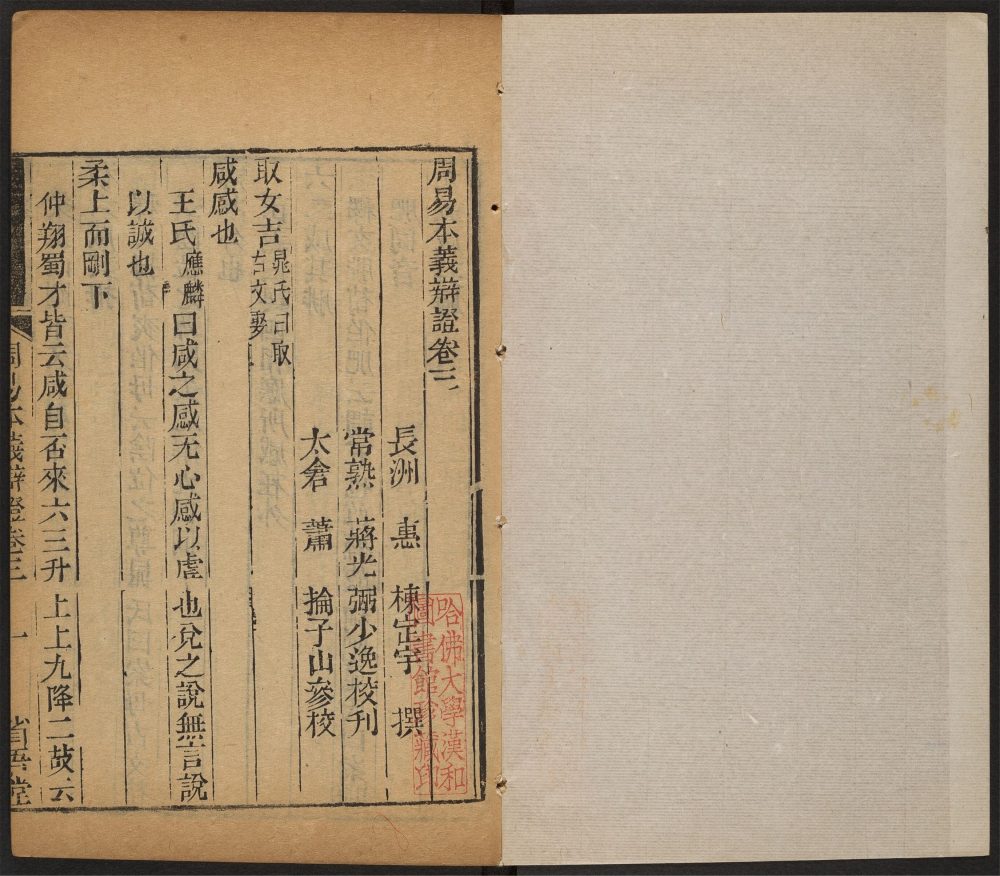 周易本義辯證卷三
長洲 惠 棟定宇 撰
常熟 蔣光弼少逸校刊
太倉 蕭 掄子山參校
取女吉晁氏曰取
古文娶
咸感也
王氏應麟曰咸之感无心感以虛也兌之說無言說
以誠也
柔上而剛下
仲翔蜀才皆云咸自否來六三升上上九降二故云
周易本義辯證卷三 一 省吾堂
哈佛大學漢和
圖書館珍藏印